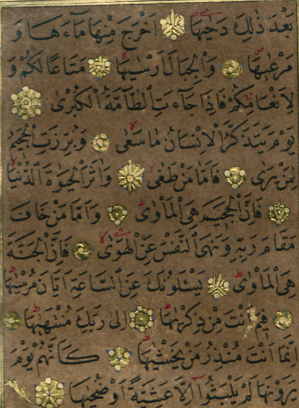 بَعْدَ ذٰلِكَ دَحٰيهَا اَخْرَجَ مِنْهَا مَآءَهَا وَ
مَرْعٰيهَا وَالْجِبَالَ اَرْسٰيهَا مَتَاعًا لَكُمْ وَ
لِاَنْعَامِكُمْ فَاِذَا جَآءَتِ الطَّآمَّةُ الْكُبْرٰى
يَوْمَ يَتَذَكَّرُ الْاِنْسَانُ مَا سَعٰى وَبُرِّزَتِ الْجَحِيمُ
لِمَنْ يَرٰى فَاَمَّا مَنْ طَغٰى وَاٰثَرَ الْحَيٰوةَ الدُّنْيَا
فَاِنَّ الْجَحِيمَ هِىَ الْمَاْوٰى وَاَمَّا مَنْ خَافَ
مَقَامَ رَبِّهِ وَنَهَى النَّفْسَ عَنِ الْهَوٰى فَاِنَّ الْجَنَّةَ
هِىَ الْمَاْوٰى يَسْئَلُونَكَ عَنِ السَّاعَةِ اَيَّانَ مُرْسٰيهَا
فِيمَ اَنْتَ مِنْ ذِكْرٰيهَا اِلٰى رَبِّكَ مُنْتَهٰيهَا
اِنَّمَا اَنْتَ مُنْذِرُ مَنْ يَخْشٰيهَا كَاَنَّهُمْ يَوْمَ
يَرَوْنَهَا لَمْ يَلْبَثُوا اِلَّا عَشِيَّةً اَوْ ضُحٰيهَا